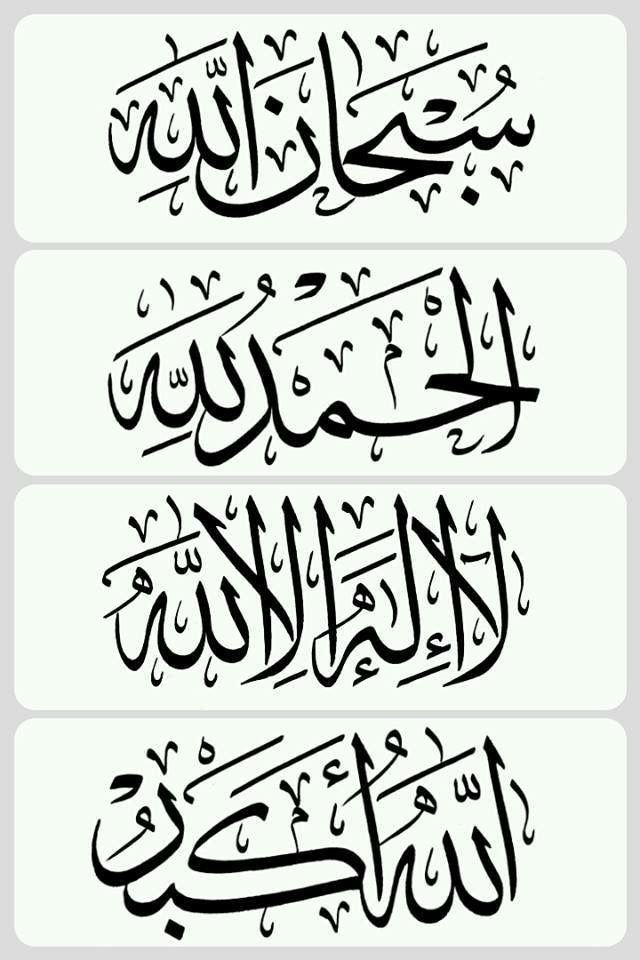 سُبْحَانَ اللَّهِ
الْحَمْدُ لِلَّهِ
لَا إِلَهَ إِلَّا اللَّهُ
اللَّهُ أَكْبَرُ